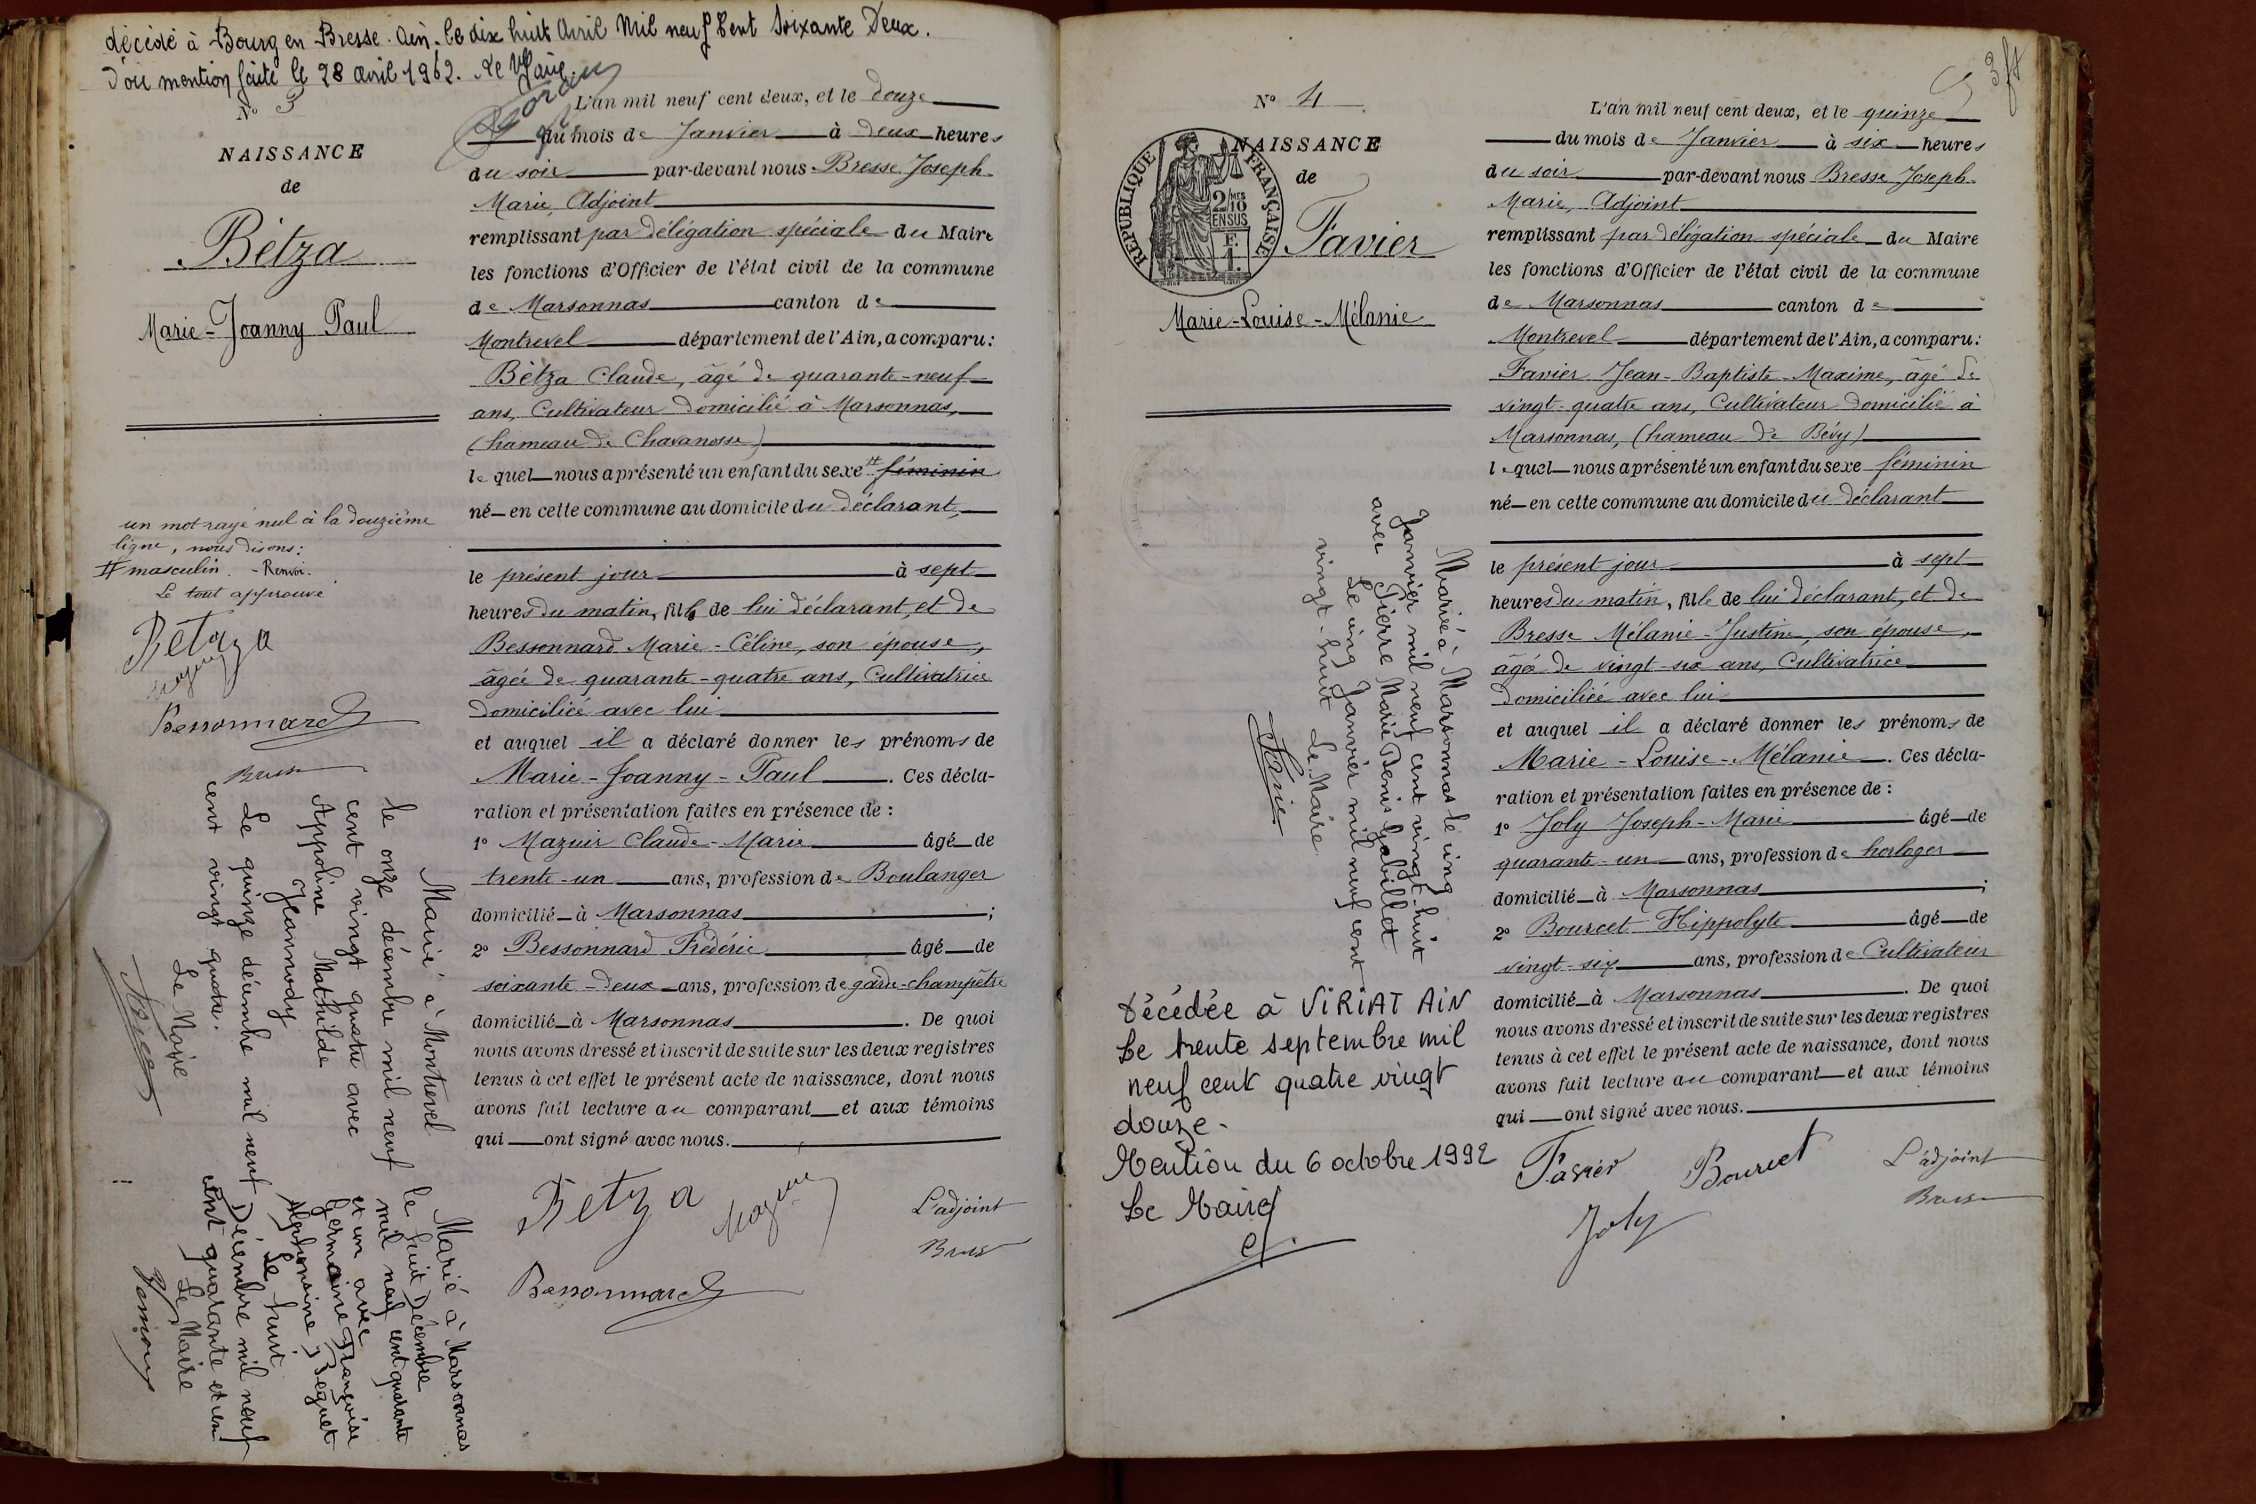 décédé à Bourg en Bresse. Ain. le dix huit Avril Mil neuf Cent Soixante Deux.
D'où mention faite le 28 avril 1962. Le Maire.
N° 3
NAISSANCE
de
Bétza
Marie-Joanny Paul
un mot rayé nul à la douzième
ligne, nous disons:
# masculin. - Renvoi.
Le tout approuvé
Betza
Bessonnard
Bresse
Marié à Montrevel
le onze décembre mil neuf
cent vingt quatre avec
Appoline Mathilde
Jeannody
Le quinze décembre mil neuf
cent vingt quatre.
Le Maire
Marié à Marsonnas
le huit Décembre
mil neuf cent quarante
et un avec
Germaine Françoise
Alphonsine Beguet
Le huit
Décembre mil neuf
cent quarante et un
Le Maire
L'an mil neuf cent deux, et le douze
du mois de Janvier à deux heures
du soir par-devant nous Bresse Joseph-
Marie, Adjoint
remplissant par délégation spéciale du Maire
les fonctions d'Officier de l'état civil de la commune
de Marsonnas canton de
Montrevel département de l'Ain, a comparu:
Bétza Claude, âgé de quarante-neuf
ans, Cultivateur domicilié à Marsonnas,
(hameau de Chavanosse)
lequel nous a présenté un enfant du sexe # féminin
né en cette commune au domicile du déclarant,
le présent jour à sept
heures du matin, fils de lui déclarant, et de
Bessonnard Marie-Céline, son épouse,
âgée de quarante-quatre ans, Cultivatrice
domiciliée avec lui
et auquel il a déclaré donner les prénoms de
Marie-Joanny-Paul. Ces décla-
ration et présentation faites en présence de :
1° Mazuir Claude-Marie âgé de
trente-un ans, profession de Boulanger
domicilié à Marsonnas ;
2° Bessonnard Frédéric âgé de
soixante-deux ans, profession de garde-champêtre
domicilié à Marsonnas. De quoi
nous avons dressé et inscrit de suite sur les deux registres
tenus à cet effet le présent acte de naissance, dont nous
avons fait lecture au comparant et aux témoins
qui ont signé avec nous.
Betza
Mazuir
L'adjoint
Bresse
Bessonnard
N° 4
NAISSANCE
de
REPUBLIQUE FRANÇAISE
2/10MES
EN SUS
F.
1.
Favier
Marie-Louise-Mélanie
Mariée à Marsonnas le cinq
Janvier mil neuf cent vingt-huit
avec Pierre Marie Denis Gabillet
Le cinq Janvier mil neuf cent
vingt-huit Le Maire
Décédée à VIRIAT AIN
Le trente septembre mil
neuf cent quatre vingt
douze-
Mention du 6 octobre 1992
Le Maire
3
L'an mil neuf cent deux, et le quinze
du mois de Janvier à six heures
du soir par-devant nous Bresse Joseph-
Marie, Adjoint
remplissant par délégation spéciale du Maire
les fonctions d'Officier de l'état civil de la commune
de Marsonnas canton de
Montrevel département de l'Ain, a comparu:
Favier Jean-Baptiste-Maxime, âgé de
vingt-quatre ans, Cultivateur domicilié à
Marsonnas, (hameau de Bévy)
lequel nous a présenté un enfant du sexe féminin
né en cette commune au domicile du déclarant
le présent jour à sept
heures du matin, fille de lui déclarant, et de
Bresse Mélanie-Justine, son épouse,
âgée de vingt-six ans, Cultivatrice
domiciliée avec lui
et auquel il a déclaré donner les prénoms de
Marie-Louise-Mélanie. Ces décla-
ration et présentation faites en présence de :
1° Joly Joseph-Marie âgé de
quarante-un ans, profession de horloger
domicilié à Marsonnas ;
2° Bourcet Hippolyte âgé de
vingt-six ans, profession de Cultivateur
domicilié à Marsonnas. De quoi
nous avons dressé et inscrit de suite sur les deux registres
tenus à cet effet le présent acte de naissance, dont nous
avons fait lecture au comparant et aux témoins
qui ont signé avec nous.
Favier
Bourcet
L'adjoint
Bresse
Joly